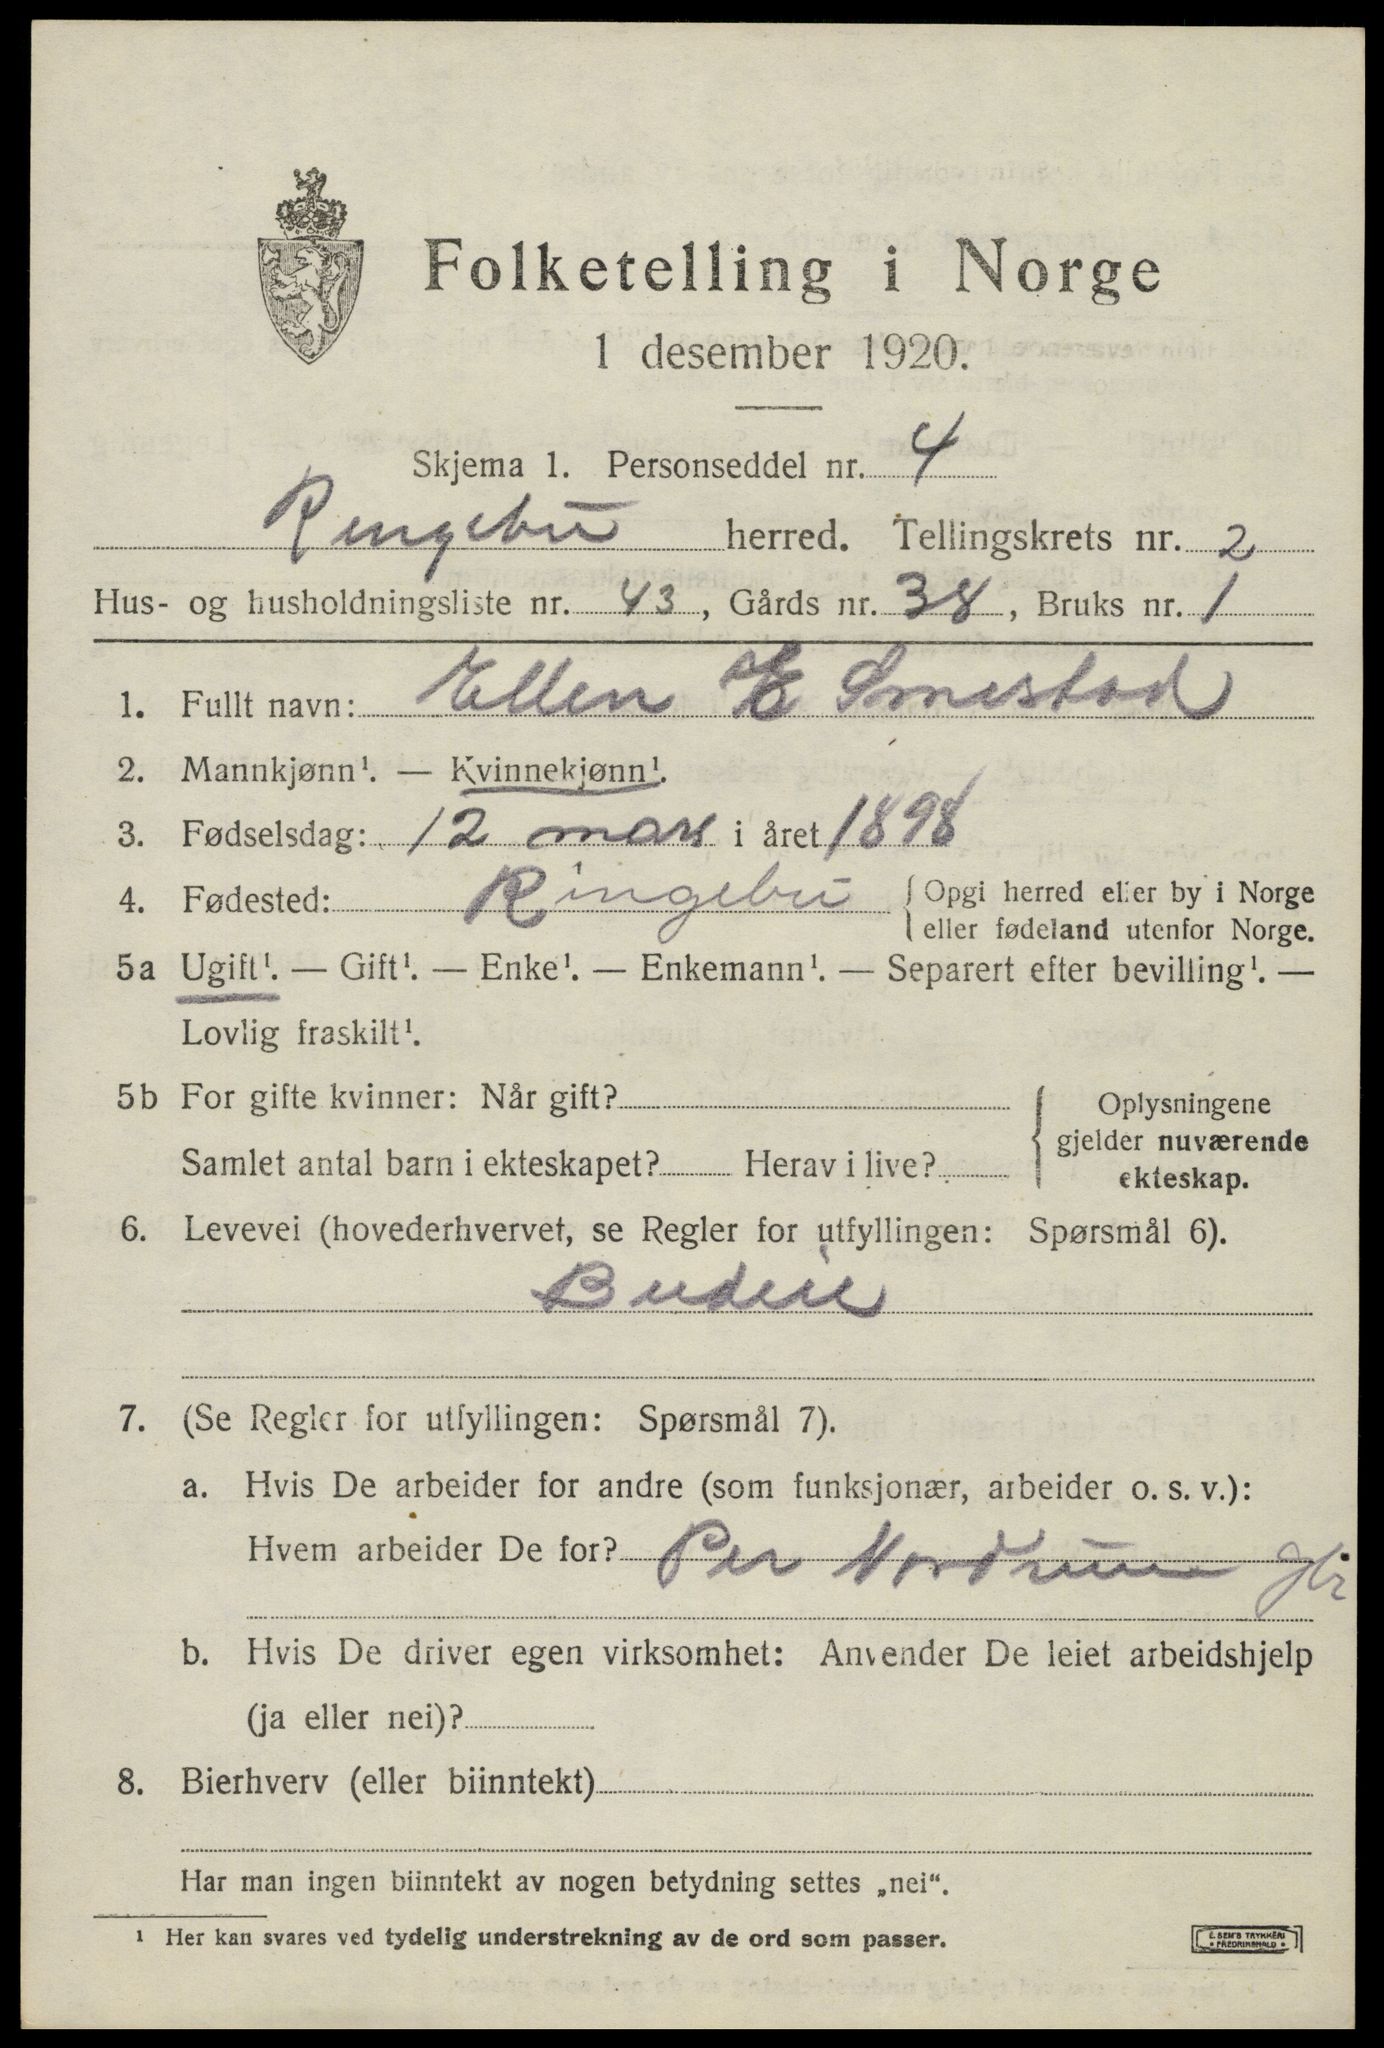 Folketelling i Norge
1 desember 1920.
Skjema 1. Personseddel nr. 4
Ringebu herred. Tellingskrets nr. 2
Hus- og husholdningsliste nr. 43, Gårds nr. 38, Bruks nr. 1
1. Fullt navn: Ellen E Smestad
2. Mannkjønn¹. — Kvinnekjønn¹.
3. Fødselsdag: 12 mars i året 1898
4. Fødested: Ringebu { Opgi herred eller by i Norge
eller fødeland utenfor Norge.
5a Ugift¹. — Gift¹. — Enke¹. — Enkemann¹. — Separert efter bevilling¹. —
Lovlig fraskilt¹.
5b For gifte kvinner: Når gift? { Oplysningene
gjelder nuværende
Samlet antal barn i ekteskapet? Herav i live?
ekteskap.
6. Levevei (hovederhvervet, se Regler for utfyllingen: Spørsmål 6).
Budeie
7. (Se Regler for utfyllingen: Spørsmål 7).
a. Hvis De arbeider for andre (som funksjonær, arbeider o. s. v.):
Hvem arbeider De for? Per Nordrum
b. Hvis De driver egen virksomhet: Anvender De leiet arbeidshjelp
(ja eller nei)?
8. Bierhverv (eller biinntekt)
Har man ingen biinntekt av nogen betydning settes „nei“.
¹ Her kan svares ved tydelig understrekning av de ord som passer.
E. SEM'S TRYKKERI
• FREDRIKSHALD •